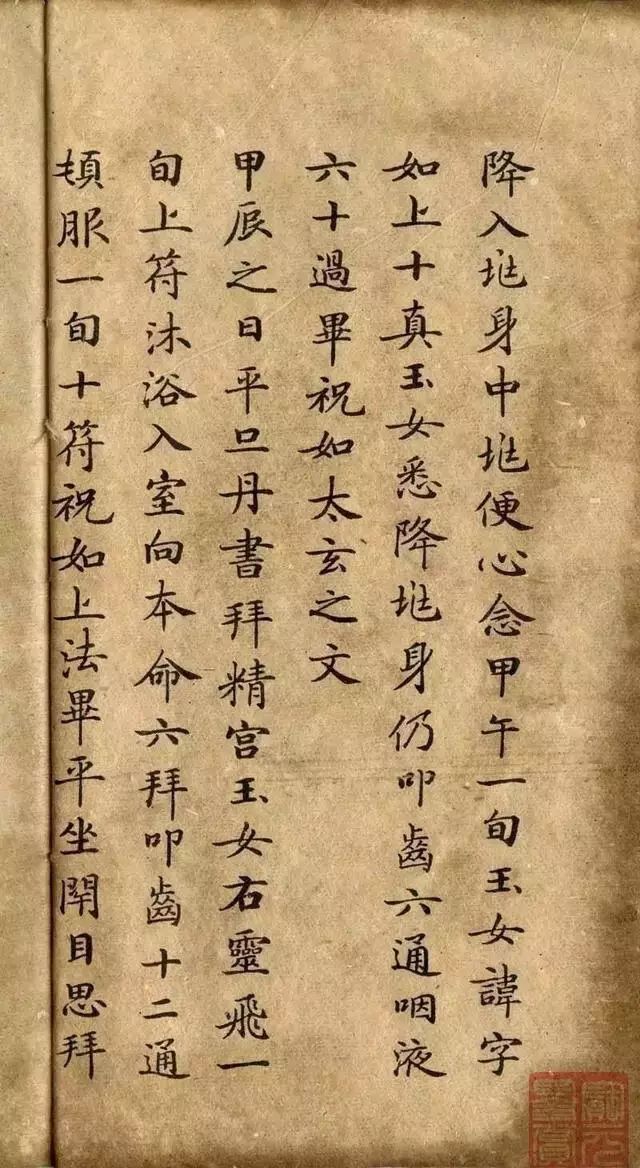 降入兆身中兆便心念甲午一旬玉女諱字
如上十真玉女悉降兆身仍叩齒六通咽液
六十過畢祝如太玄之文
甲辰之日平旦丹書拜精宮玉女右靈飛一
旬上符沐浴入室向本命六拜叩齒十二通
頓服一旬十符祝如上法畢平坐閇目思拜